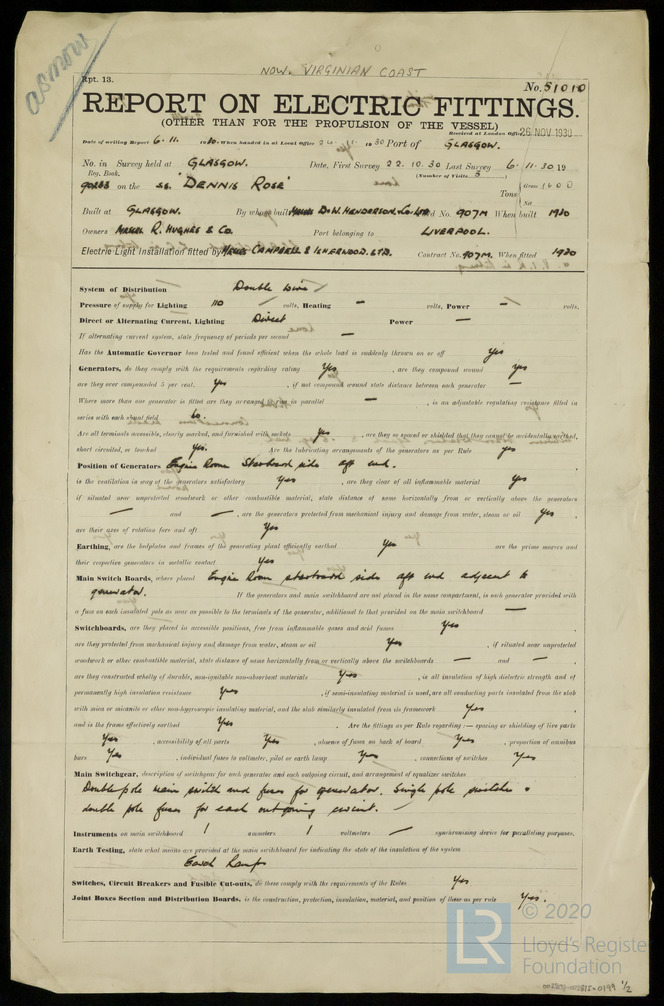 as now
NOW. VIRGINIAN COAST
Rpt. 13.
No. 51010
REPORT ON ELECTRIC FITTINGS.
(OTHER THAN FOR THE PROPULSION OF THE VESSEL)
Received at London Office 26 NOV 1930
Date of writing Report 6.11. 1930 When handed in at Local Office 1930 Port of GLASGOW.
No. in Survey held at GLASGOW. Date, First Survey 22.10.30 Last Survey 6.11.30 19
Reg. Book. (Number of Visits 3)
90283 on the S.S. "DENNIS ROSE" Tons { Gross 1600
Net
Built at GLASGOW. By whom built MESSRS D. W. HENDERSON, Co. LTD Yard No. 907M When built 1930
Owners MESSRS R. HUGHES & CO. Port belonging to LIVERPOOL.
Electric Light Installation fitted by MESSRS CAMPBELL & ISHERWOOD. LTD. Contract No. 907M. When fitted 1930
System of Distribution Double Wire
Pressure of supply for Lighting 110 volts, Heating — volts, Power — volts,
Direct or Alternating Current, Lighting Direct Power —
If alternating current system, state frequency of periods per second —
Has the Automatic Governor been tested and found efficient when the whole load is suddenly thrown on or off Yes
Generators, do they comply with the requirements regarding rating Yes, are they compound wound Yes
are they over compounded 5 per cent. Yes, if not compound wound state distance between each generator —
Where more than one generator is fitted are they arranged to run in parallel —, is an adjustable regulating resistance fitted in
series with each shunt field
Are all terminals accessible, clearly marked, and furnished with sockets Yes, are they so spaced or shielded that they cannot be accidentally earthed,
short circuited, or touched Yes. Are the lubricating arrangements of the generators as per Rule Yes
Position of Generators Engine Room Starboard side aft end.
is the ventilation in way of the generators satisfactory Yes, are they clear of all inflammable material Yes
if situated near unprotected woodwork or other combustible material, state distance of same horizontally from or vertically above the generators
— and —, are the generators protected from mechanical injury and damage from water, steam or oil Yes,
are their axes of rotation fore and aft Yes
Earthing, are the bedplates and frames of the generating plant efficiently earthed Yes are the prime movers and
their respective generators in metallic contact Yes
Main Switch Boards, where placed Engine Room starboard side aft end adjacent to
generator. If the generators and main switchboard are not placed in the same compartment, is each generator provided with
a fuse on each insulated pole as near as possible to the terminals of the generator, additional to that provided on the main switchboard —
Switchboards, are they placed in accessible positions, free from inflammable gases and acid fumes Yes
are they protected from mechanical injury and damage from water, steam or oil Yes, if situated near unprotected
woodwork or other combustible material, state distance of same horizontally from or vertically above the switchboards — and —,
are they constructed wholly of durable, non-ignitable non-absorbent materials Yes, is all insulation of high dielectric strength and of
permanently high insulation resistance Yes, if semi-insulating material is used, are all conducting parts insulated from the slab
with mica or micanite or other non-hygroscopic insulating material, and the slab similarly insulated from its framework Yes
and is the frame effectively earthed Yes. Are the fittings as per Rule regarding:— spacing or shielding of live parts
Yes, accessibility of all parts Yes, absence of fuses on back of board Yes, proportion of omnibus
bars Yes, individual fuses to voltmeter, pilot or earth lamp Yes, connections of switches Yes
Main Switchgear, description of switchgear for each generator and each outgoing circuit, and arrangement of equalizer switches
Double pole main switch and fuses for generator. Single pole switches &
double pole fuses for each outgoing circuit.
Instruments on main switchboard 1 ammeters 1 voltmeters — synchronising device for paralleling purposes.
Earth Testing, state what means are provided at the main switchboard for indicating the state of the insulation of the system
Earth Lamps
Switches, Circuit Breakers and Fusible Cut-outs, do these comply with the requirements of the Rules Yes
Joint Boxes Section and Distribution Boards, is the construction, protection, insulation, material, and position of these as per rule Yes.
LR
© 2020
Lloyd's Register
Foundation
1/2